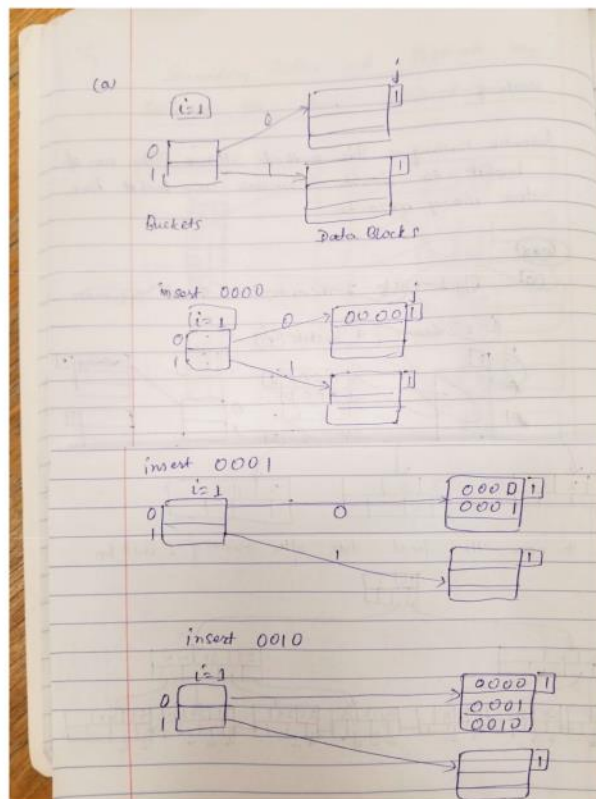 (a)
j
i=1
1
0
0
1
1
1
Buckets
Data Blocks
insert 0000
j
i=1
0
0000
1
0
1
1
1
insert 0001
i=1
0000
1
0
0
0001
1
1
1
insert 0010
i=1
0000
1
0
0001
1
0010
1